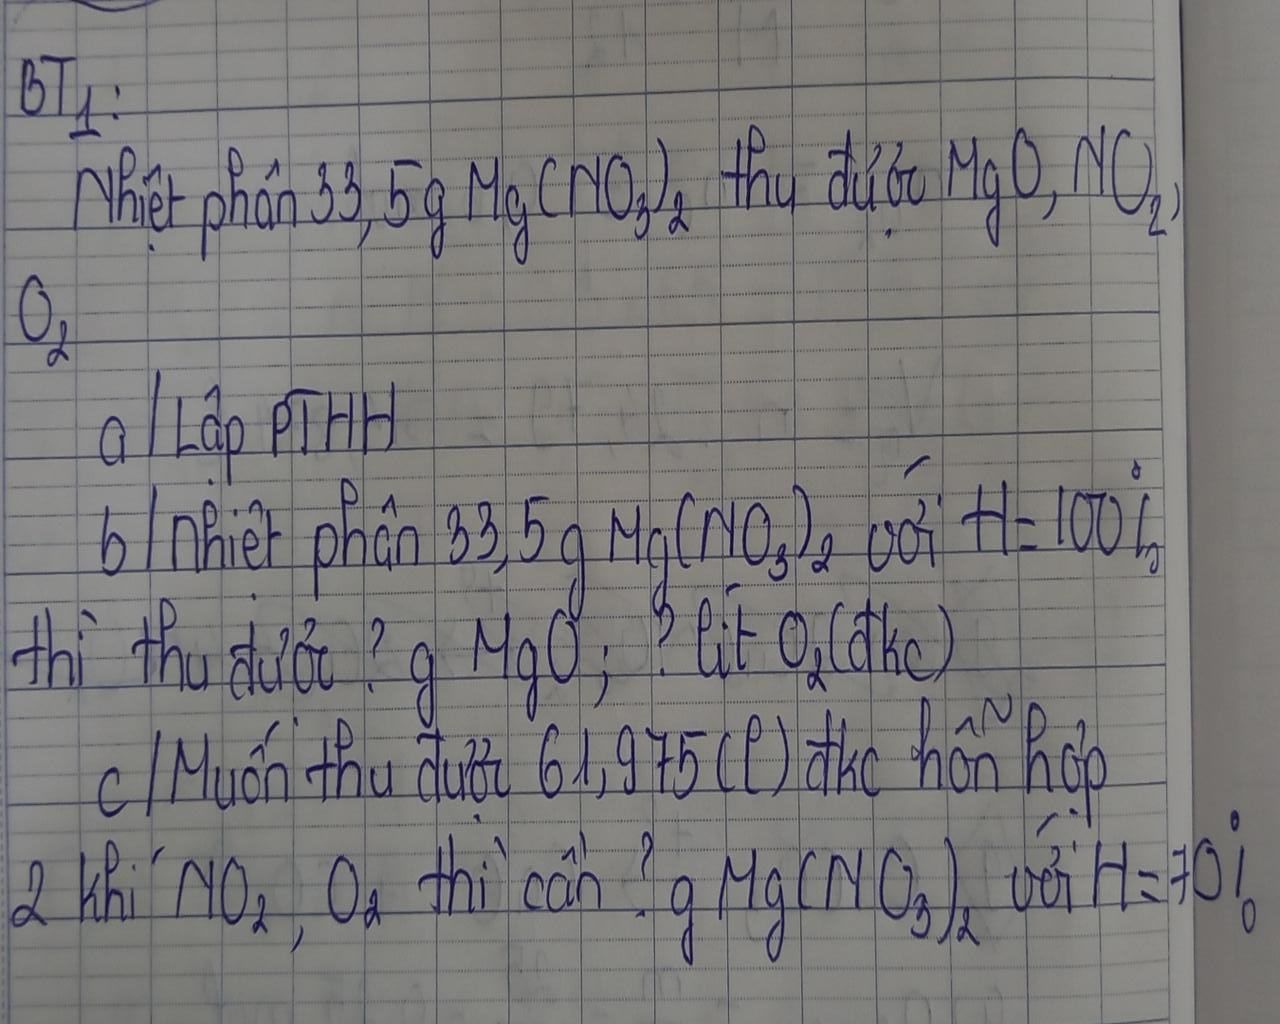 BT1:
Nhiệt phân 33,5g Mg(NO3)2 thu được MgO, NO2,
O2
a/ Lập PTHH
b/ nhiệt phân 33,5g Mg(NO3)2 với H=100%
thì thu được ? g MgO; ? lít O2(đkc)
c/ Muốn thu được 61,975(l) đkc hỗn hợp
2 khí NO2, O2 thì cần ? g Mg(NO3)2 với H=70%